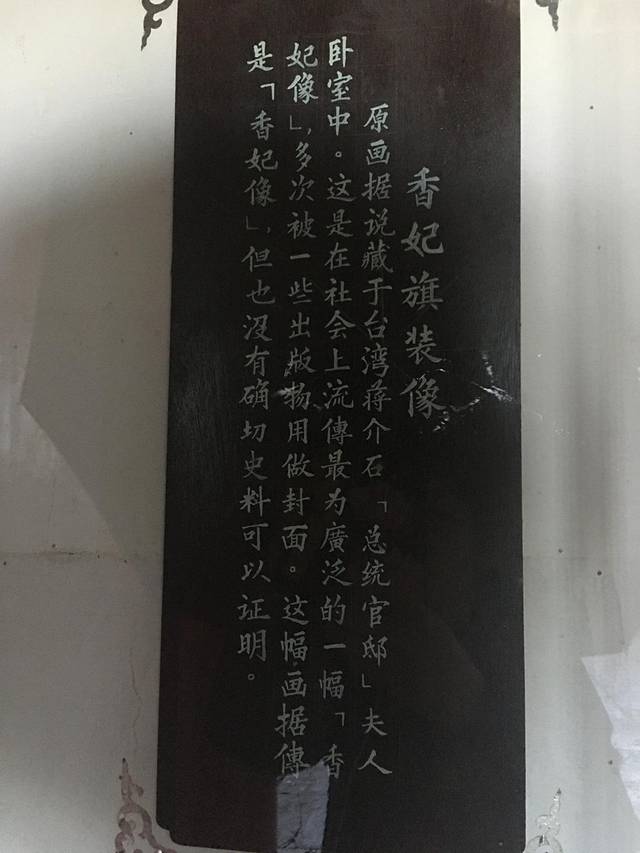 香妃旗装像
原画据说藏于台湾蒋介石「总统官邸」夫人
卧室中。这是在社会上流傳最为廣泛的一幅「香
妃像」,多次被一些出版物用做封面。这幅画据傳
是「香妃像」,但也没有确切史料可以证明。